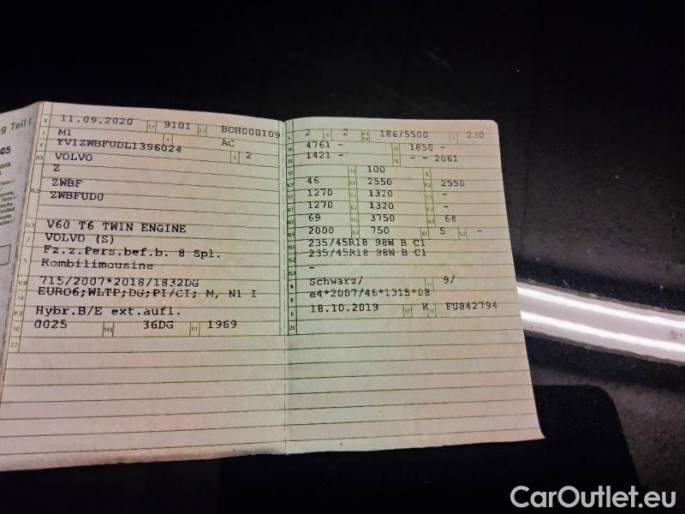 g Teil I
05
11.09.2020 9101 BOH000109
M1 AC
YV1ZWBFUDL1396024
VOLVO 2
Z
ZWBF
ZWBFUD0
V60 T6 TWIN ENGINE
VOLVO (S)
Fz.z.Pers.bef.b. 8 Spl.
Kombilimousine
715/2007*2018/1832DG
EURO6;WLTP;DG;PI/CI; M, N1 I
Hybr.B/E ext.aufl.
0025 36DG 1969
2 2 186/5500 230
4761 - 1850 -
1421 - - - 2061
100
46 2550 2550
1270 1320 -
1270 1320 -
69 3750 68
2000 750 5 -
235/45R18 98W B C1
235/45R18 98W B C1
-
Schwarz/ 9/
e4*2007/46*1315*08
18.10.2019 K FU842794
CarOutlet.eu